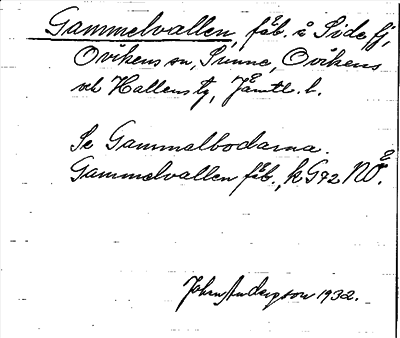 Gammelvallen, fäb. å Sidefj,
Ovikens sn, Sunne, Ovikens
och Hallens tg, Jämtl. l.
Se Gammalbodarna.
Gammelvallen fäb., k G72 NÖ.
John Anderson 1932.